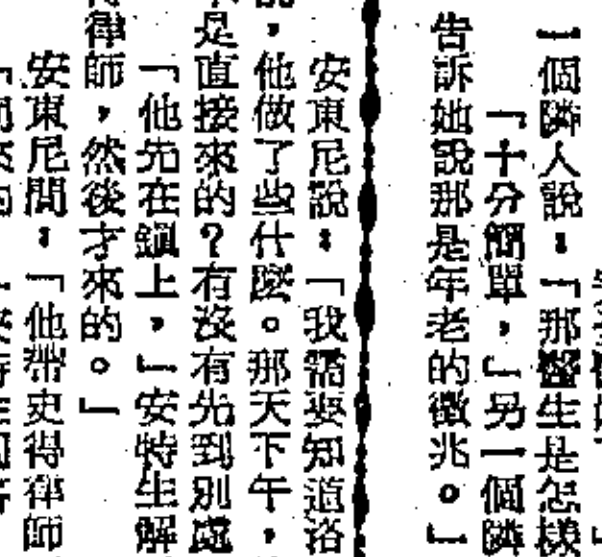 一個隣人說：「那醫生是怎樣
「十分簡單，」另一個隣
告訴她說那是年老的徵兆。」
安東尼說：「我需要知道洛
，他做了些什麽。那天下午，
是直接來的？有沒有先到別處
「他先在鎭上，」安特生解
律師，然後才來的。」
安東尼問：「他帶史得律師